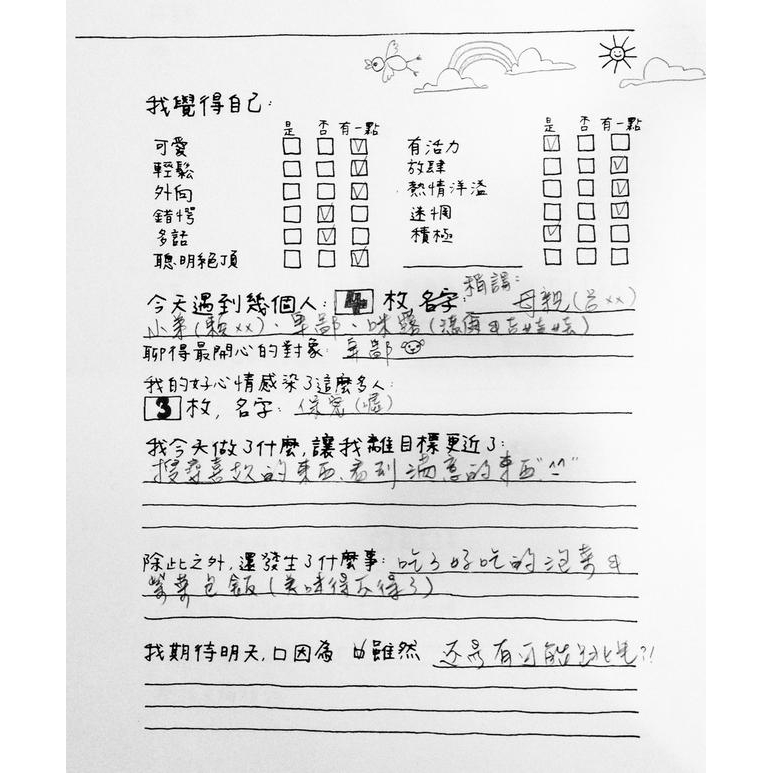 我覺得自己:
是 否 有一點
是 否 有一點
可愛
有活力
輕鬆
放肆
外向
熱情洋溢
錯愕
迷惘
多話
積極
聰明絕頂
今天遇到幾個人: 4 枚, 名字: 稱謂: 母親(呂xx)
小弟(賴xx)、卑鄙、咪露
聊得最開心的對象: 卑鄙
我的好心情感染了這麼多人:
3 枚, 名字: 保密(噓)
我今天做了什麼, 讓我離目標更近了:
搜尋喜歡的東西、看到滿意的東西 ^^"
除此之外, 還發生了什麼事: 吃了好吃的泡菜
包飯(美味得不得了)
我期待明天, 口因為 口雖然 還是有可能?!